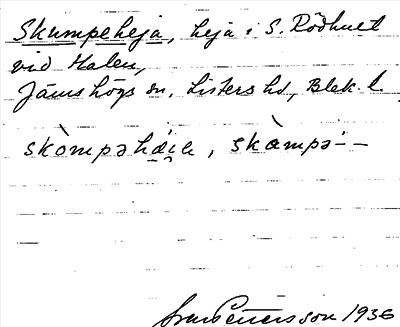 Skumpeheja, heja i S. Rödhult
vid Halen,
Jämshögs sn, Listers hd, Blek. l.
skòmpəhæ̀i̯a, skæ̀mpə⸗–
Pettersson 1936